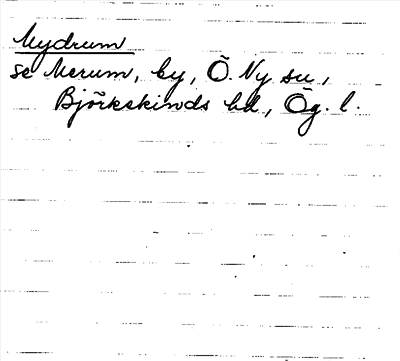 Mydrum
se Merum, by, Ö. Ny su,
Björkekinds hd, Ög. l.